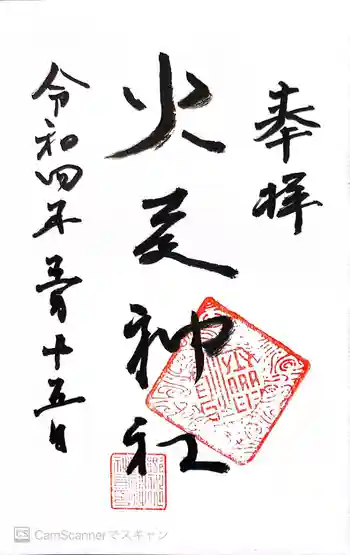 奉拝
火足神社
令和四年五月十五日
CS CamScannerでスキャン